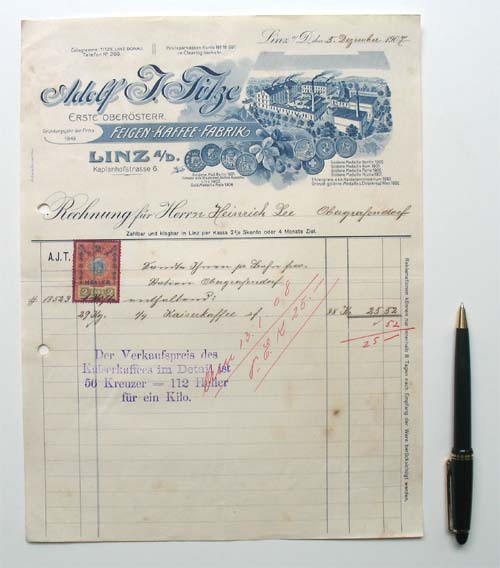 Telegramme: TITZE LINZ DONAU.
Telefon Nº 200.
Postsparkassen Konto Nº
im Clearingverkehr.
Linz a/D. den 5. Dezember 1907
Adolf J. Titze
ERSTE OBERÖSTERR.
Gründungsjahr der Firma
FEIGEN-KAFFEE-FABRIK
LINZ a/D.
Kaplanhofstrasse 6.
Rechnung für Herrn Heinrich Lee Obergrafendorf
Zahlbar und klagbar in Linz per Kassa 2% Skonto oder 4 Monate Ziel.
A.J.T.
Sandte Ihnen per Bahn
Station Obergrafendorf
HELLER
enthaltend:
29 Kg. Kaiserkaffee 88 K 25.52
52
25
13.1.08
K 25.
Der Verkaufspreis des
Kaiserkaffees im Detail ist
56 Kreuzer = 112 Heller
für ein Kilo.
Reklamationen können nur innerhalb 8 Tagen nach Empfang der Ware berücksichtigt werden.